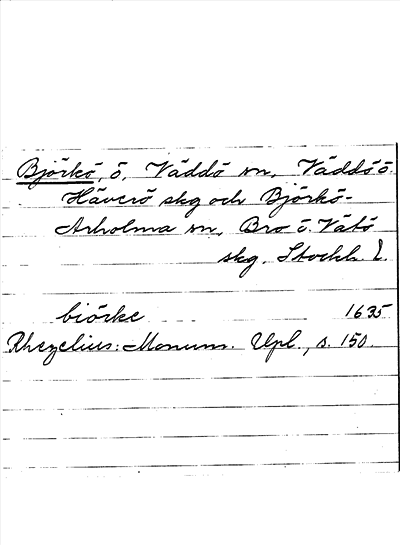 Björkö, ö, Väddö sn, Väddö ö.
Häverö skg och Björkö-
Arholma sn, Bro o. Vätö
skg. Stockh. l.
biörke 1635
Rhezelius: Monum. Upl., s. 150.